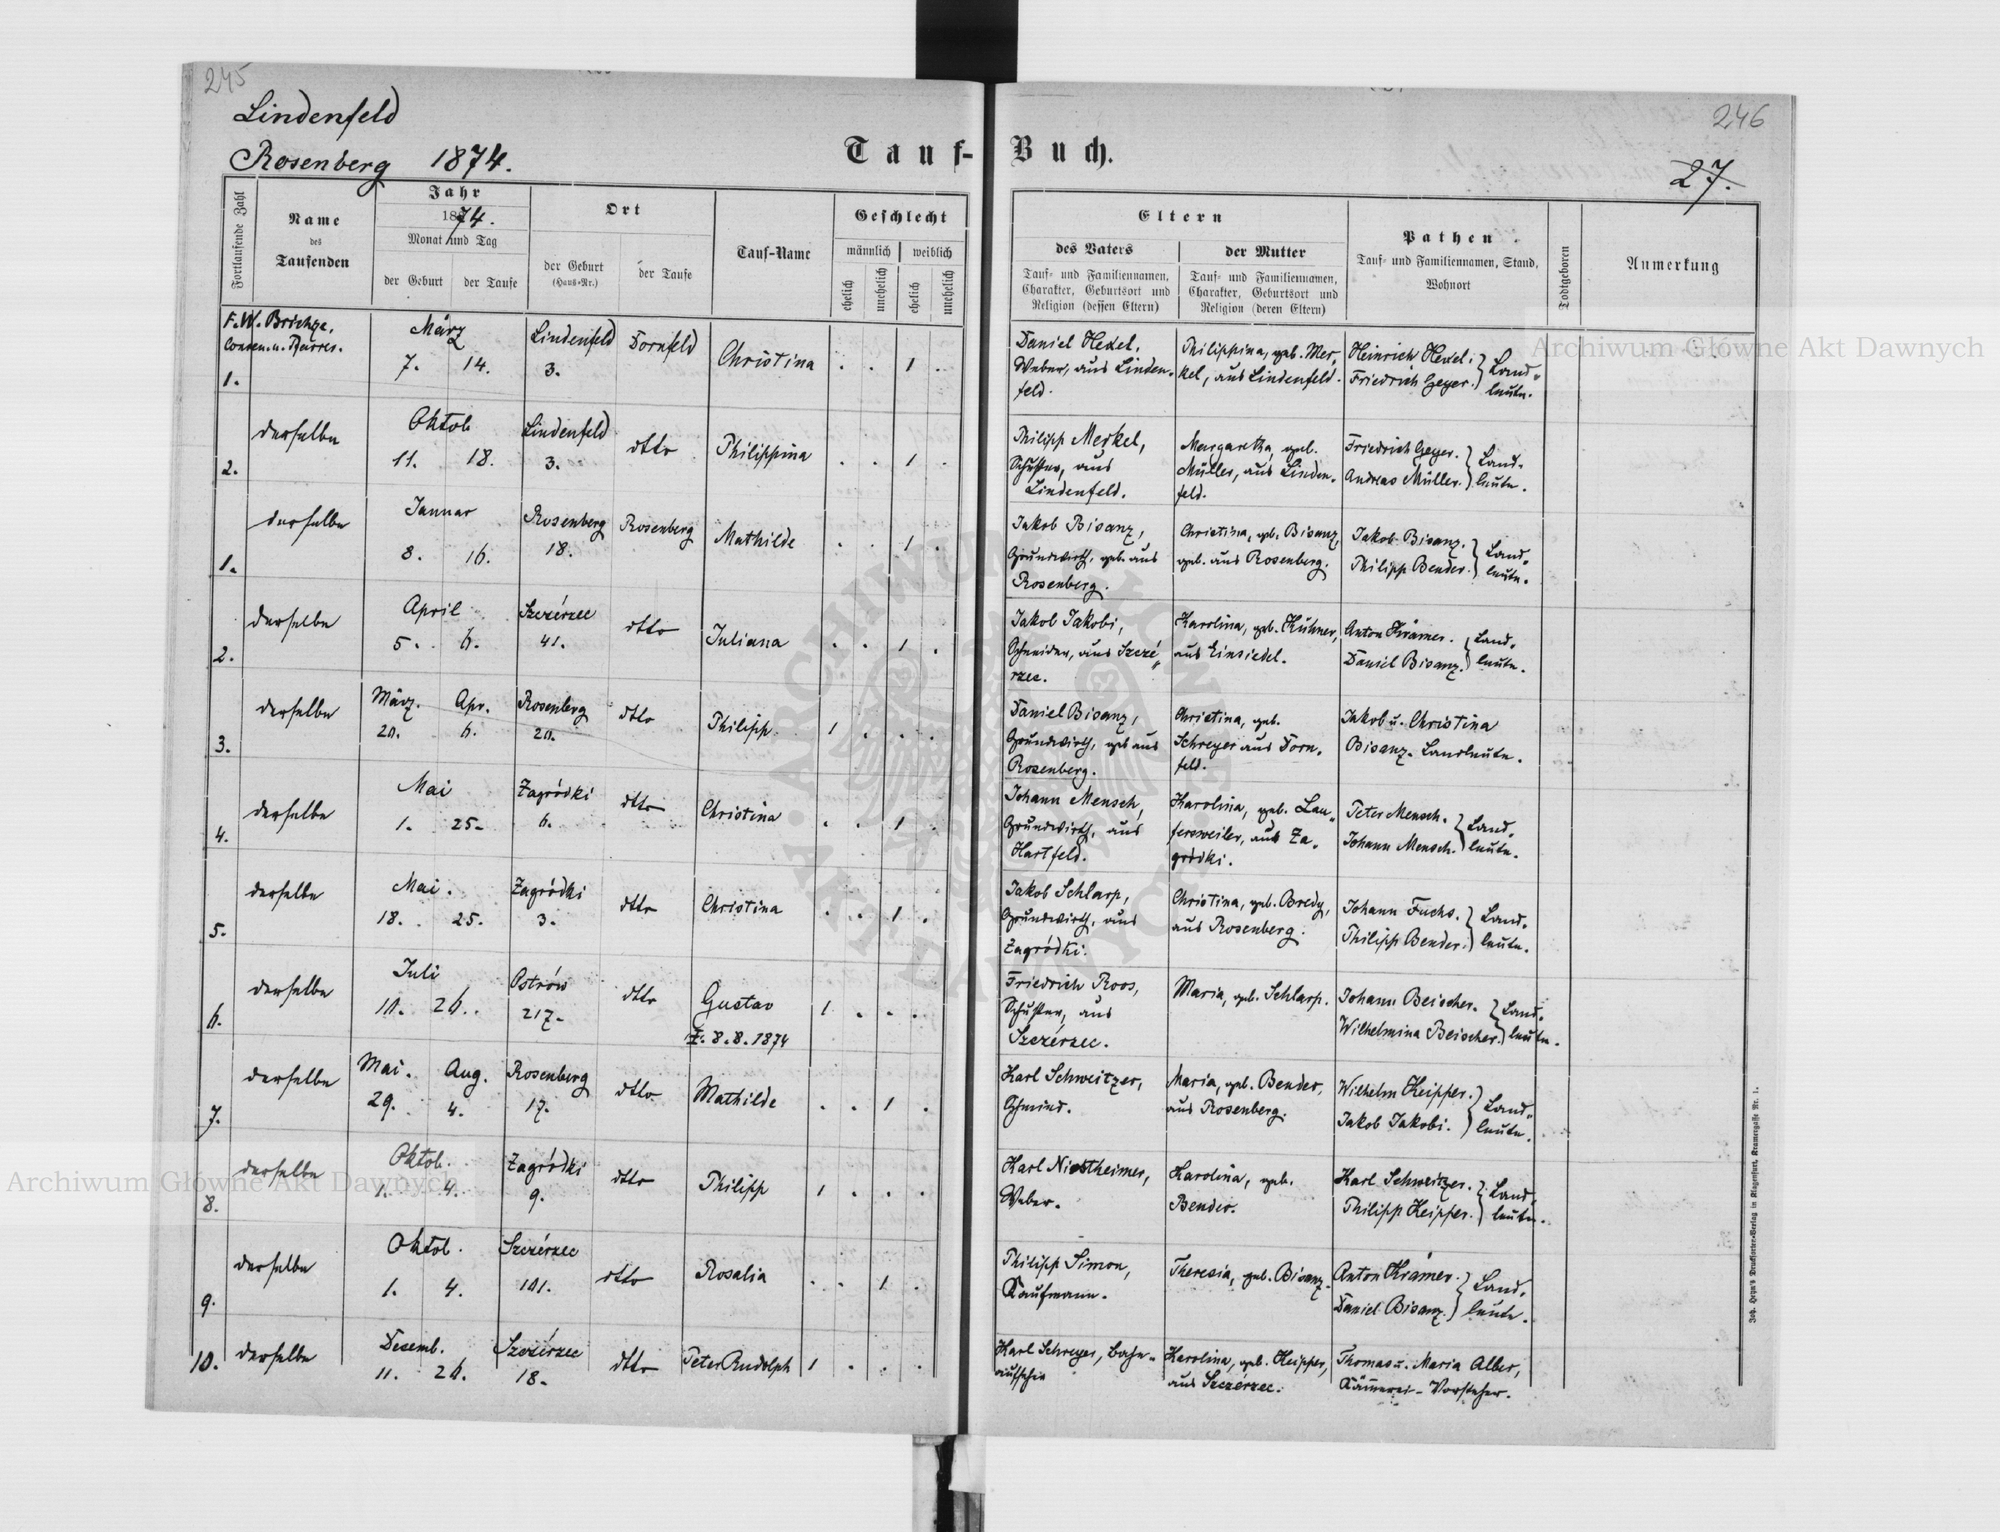 245
Lindenfeld
Rosenberg 1874.
Tauf-
Buch.
246
27.
Fortlaufende Zahl
Name
des
Taufenden
Jahr
1874.
Monat und Tag
der Geburt
der Taufe
Ort
der Geburt
(Haus-Nr.)
der Taufe
Tauf-Name
Geschlecht
männlich
weiblich
ehelich
unehelich
ehelich
unehelich
Eltern
des Vaters
Tauf- und Familiennamen,
Charakter, Geburtsort und
Religion (dessen Eltern)
der Mutter
Tauf- und Familiennamen,
Charakter, Geburtsort und
Religion (deren Eltern)
Pathen
Tauf- und Familiennamen, Stand,
Wohnort
Todtgeboren
Anmerkung
F. W.
1.
März
7. 14.
Lindenfeld
3.
Dornfeld
Christina
. . 1 .
Daniel Hexel,
Weber, aus Linden-
feld.
Philippina, geb. Mer-
kel, aus Lindenfeld.
Heinrich Hexel.
Friedrich Geyer.
Land-
leute.
2.
derselbe
Oktob
11. 18.
Lindenfeld
3.
dtto
Philippina
. . 1 .
Philipp Merkel,
Schuster, aus
Lindenfeld.
Margaretha, geb.
Müller, aus Linden-
feld.
Friedrich Geyer.
Andreas Müller.
Land-
leute.
1.
derselbe
Januar
8. 16.
Rosenberg
18.
Rosenberg
Mathilde
. . 1 .
Jakob Bisanz,
Grundwirth, geb. aus
Rosenberg.
Christina, geb. Bisanz,
geb. aus Rosenberg.
Jakob Bisanz.
Philipp Bender.
Land-
leute.
2.
derselbe
April
5. 6.
Szczérzec
41.
dtto
Juliana
. . 1 .
Jakob Jakobi,
Schneider, aus Szczé-
rzec.
Karolina, geb. Kühner,
aus Einsiedel.
Anton Krämer.
Daniel Bisanz.
Land-
leute.
3.
derselbe
März. Apr.
20. 6.
Rosenberg
20.
dtto
Philipp
1 . . .
Daniel Bisanz,
Grundwirth, geb aus
Rosenberg.
Christina, geb.
Schreyer aus Dorn-
feld.
Jakob u. Christina
Bisanz. Landleute.
4.
derselbe
Mai
1. 25.
Zagródki
6.
dtto
Christina
. . 1 .
Johann Mensch,
Grundwirth, aus
Hartfeld.
Karolina, geb. Lau-
fersweiler, aus Za-
gródki.
Peter Mensch.
Johann Mensch.
Land-
leute.
5.
derselbe
Mai.
18. 25.
Zagródki
3.
dtto
Christina
. . 1 .
Jakob Schlarp,
Grundwirth, aus
Zagródki.
Christina, geb. Bredy,
aus Rosenberg.
Johann Fuchs.
Philipp Bender.
Land-
leute.
6.
derselbe
Juli
10. 26.
Ostrów
217.
dtto
Gustav
8.8.1874
1 . . .
Friedrich Roos,
Schuster, aus
Szczérzec.
Maria, geb. Schlarp.
Johann Beischer.
Wilhelmina Beischer.
Land-
leute.
7.
derselbe
Mai. Aug.
29. 4.
Rosenberg
17.
dtto
Mathilde
. . 1 .
Karl Schweitzer,
Schmied.
Maria, geb. Bender,
aus Rosenberg.
Wilhelm Keipper.
Jakob Jakobi.
Land-
leute.
8.
derselbe
Oktob.
1. 4.
Zagródki
9.
dtto
Philipp
1 . . .
Karl
Weber.
Karolina, geb.
Bender.
Karl Schweitzer.
Philipp Keipper.
Land-
leute.
9.
derselbe
Oktob.
1. 4.
Szczérzec
101.
dtto
Rosalia
. . 1 .
Philipp Simon,
Kaufmann.
Theresia, geb. Bisanz.
Anton Krämer.
Daniel Bisanz.
Land-
leute.
10.
derselbe
Desemb.
11. 26.
Szczérzec
18.
dtto
Peter Rudolph
1 . . .
Karl Schreyer, Bahn-
aufseher
Karolina, geb. Keipper,
aus Szczérzec.
Thomas u. Maria Alber,
Vorsteher.
Joh. Heyn's Drucksorten-Verlag in Klagenfurt, Kramergasse Nr. 1.
Archiwum Główne Akt Dawnych
Archiwum Główne Akt Dawnych